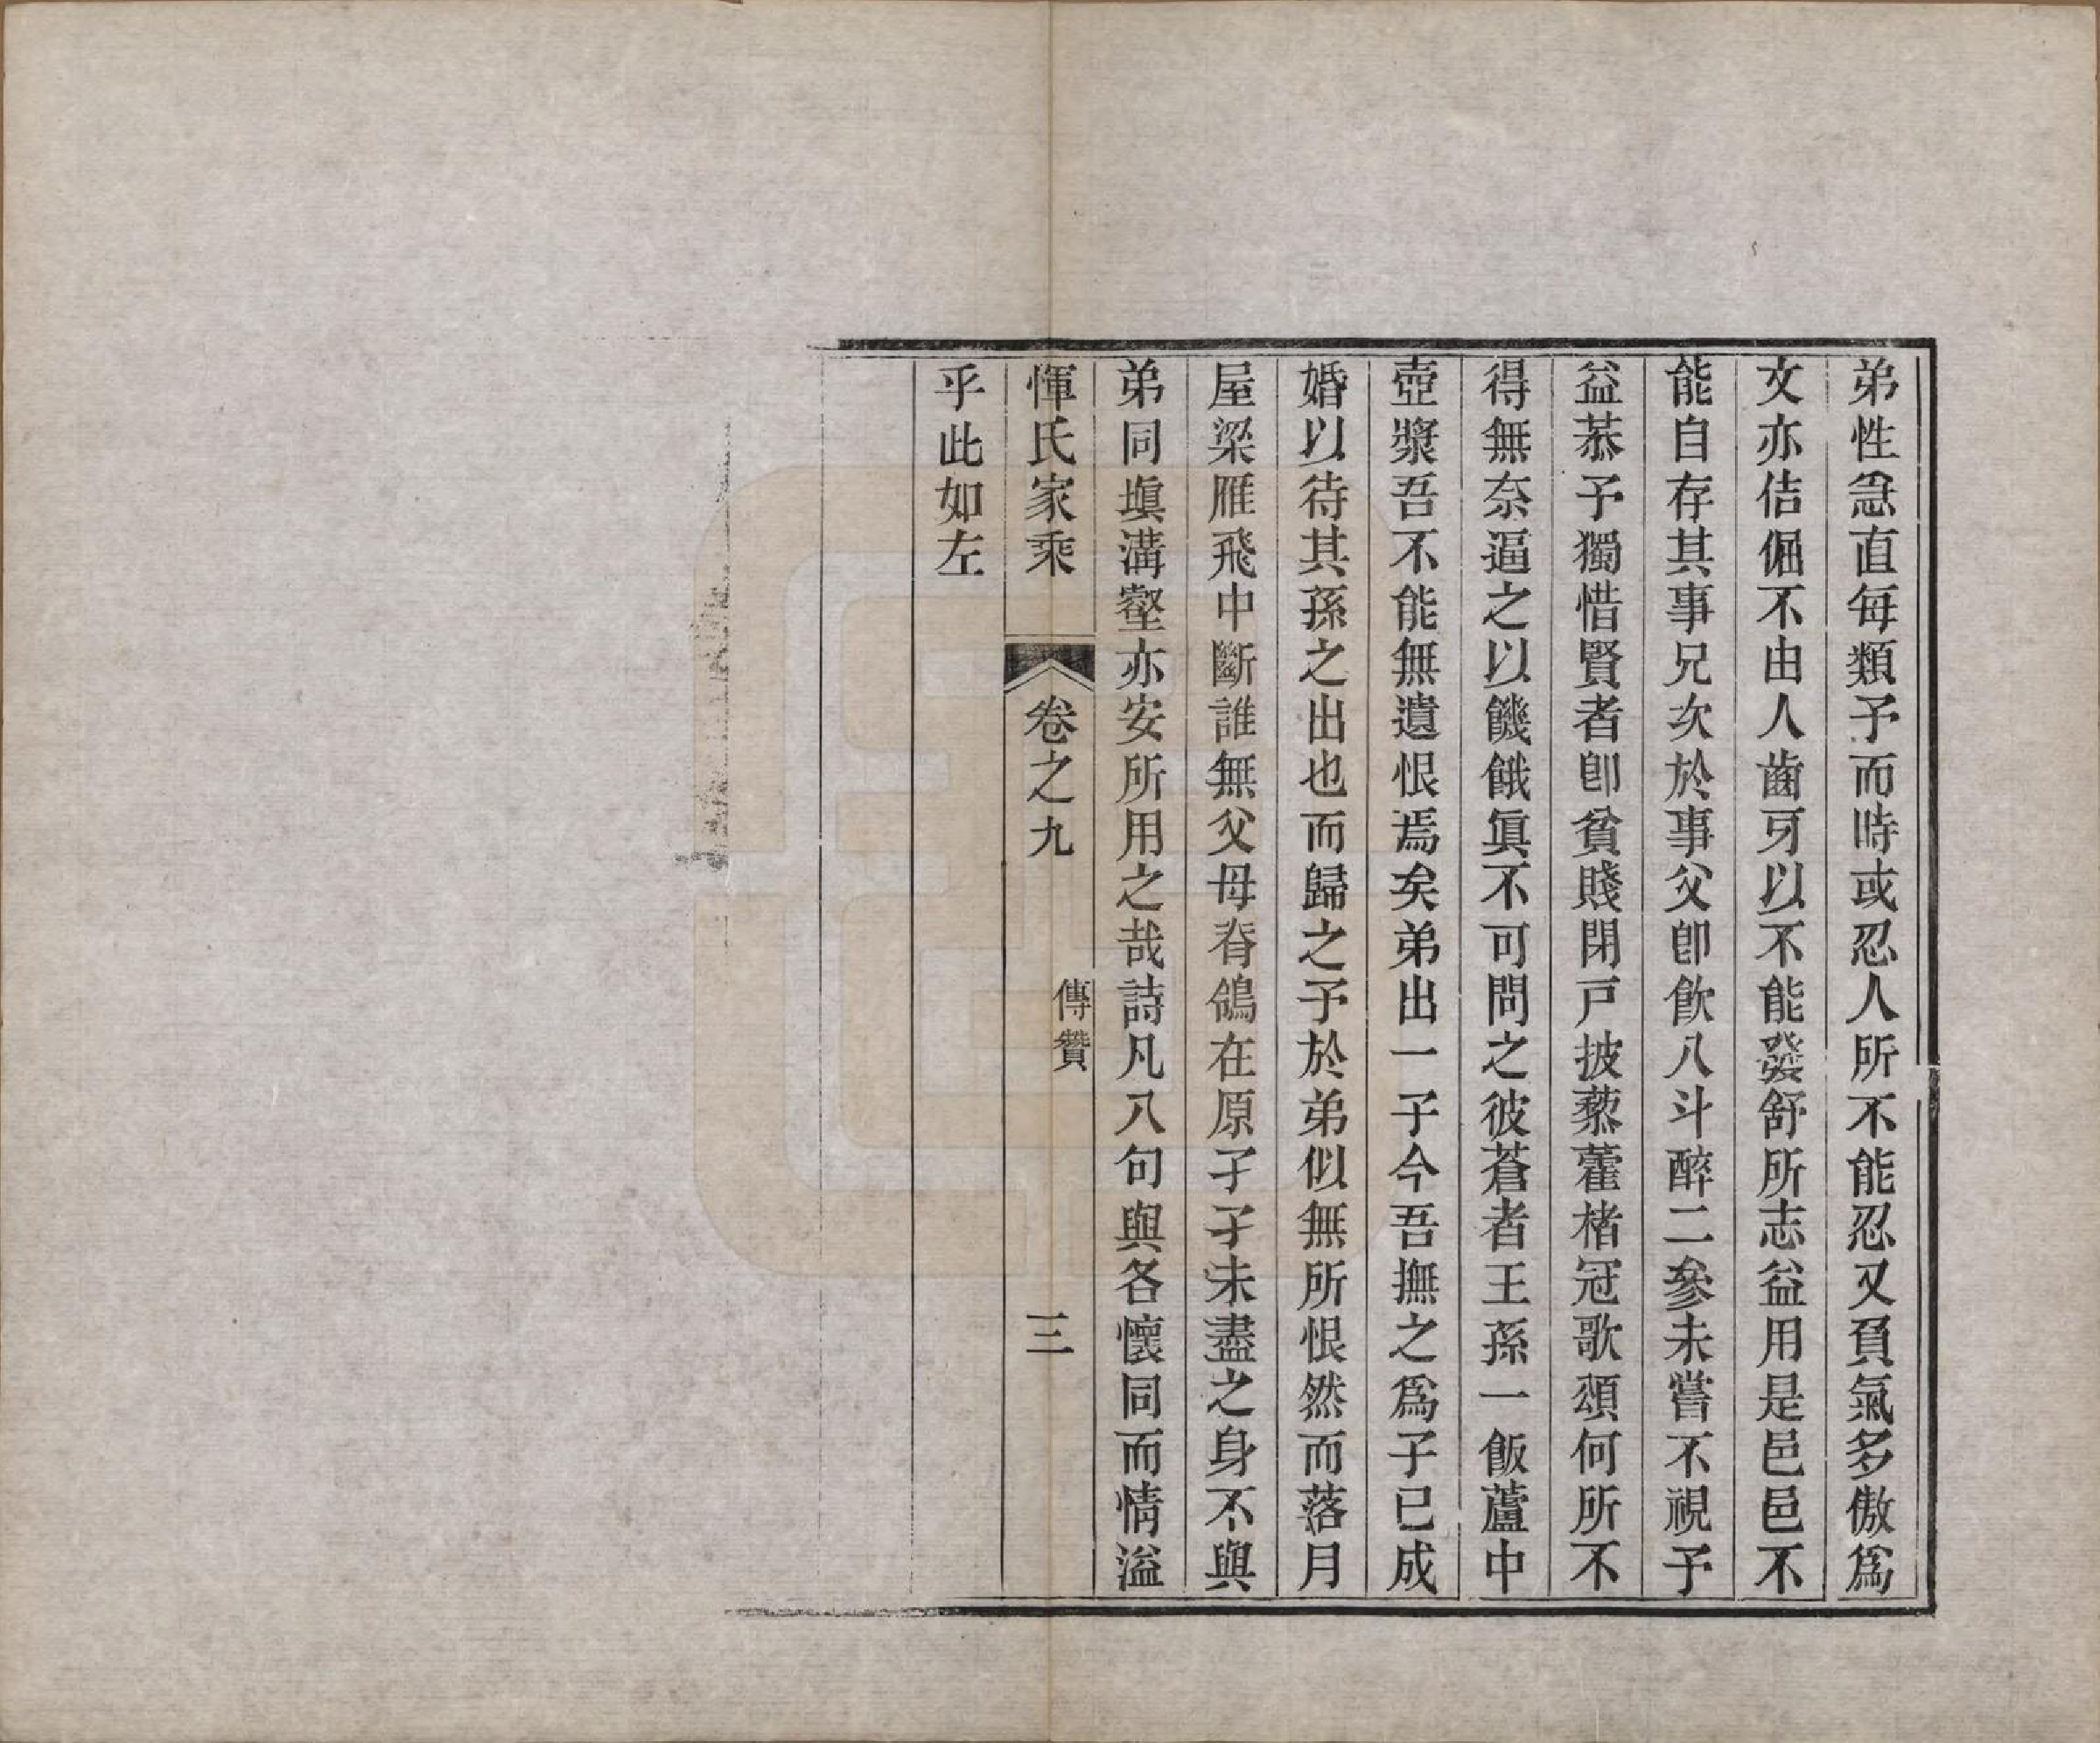 弟性急直每類予而時或忍人所不能忍又負氣多傲爲
文亦佶倔不由人齒牙以不能發舒所志益用是邑邑不
能自存其事兄次於事父卽飮八斗醉二參未嘗不視予
益恭予獨惜賢者卽貧賤閉戸披藜藿楮冠歌頌何所不
得無奈逼之以饑餓眞不可問之彼蒼者王孫一飯蘆中
壺漿吾不能無遺恨焉矣弟出一子今吾撫之爲子已成
婚以待其孫之出也而歸之予於弟似無所恨然而落月
屋梁雁飛中斷誰無父母脊鴒在原孑孑未盡之身不與
弟同塡溝壑亦安所用之哉詩凡八句與各懷同而情溢
惲氏家乘 卷之九 傳贊 三
乎此如左